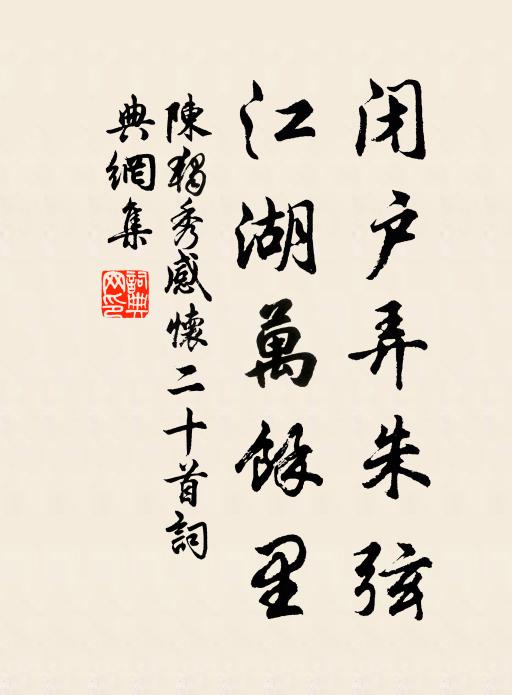 闭户弄朱弦
江湖萬餘里
陳獨秀感懷二十首詞
典網集
詞典
网印